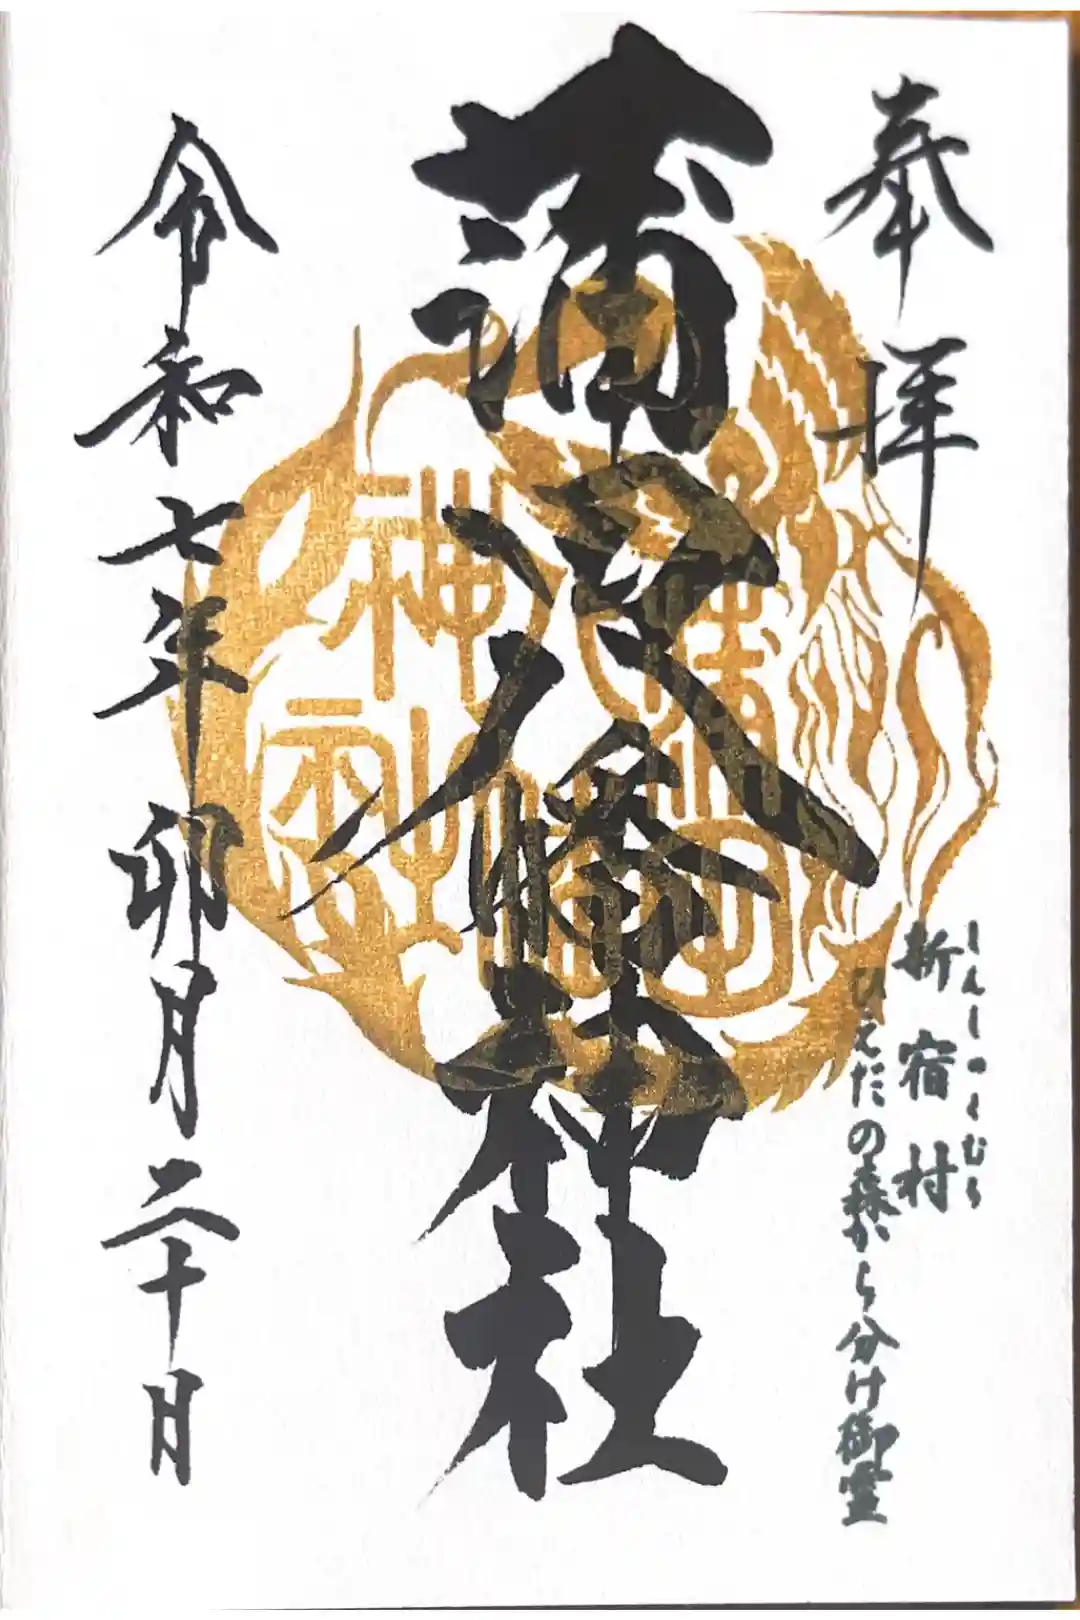 奉拝
しんしゅくむら
新宿村
ひえだの森から分け御霊
蒲田八幡神社
蒲田八幡神社
令和七年卯月二十日